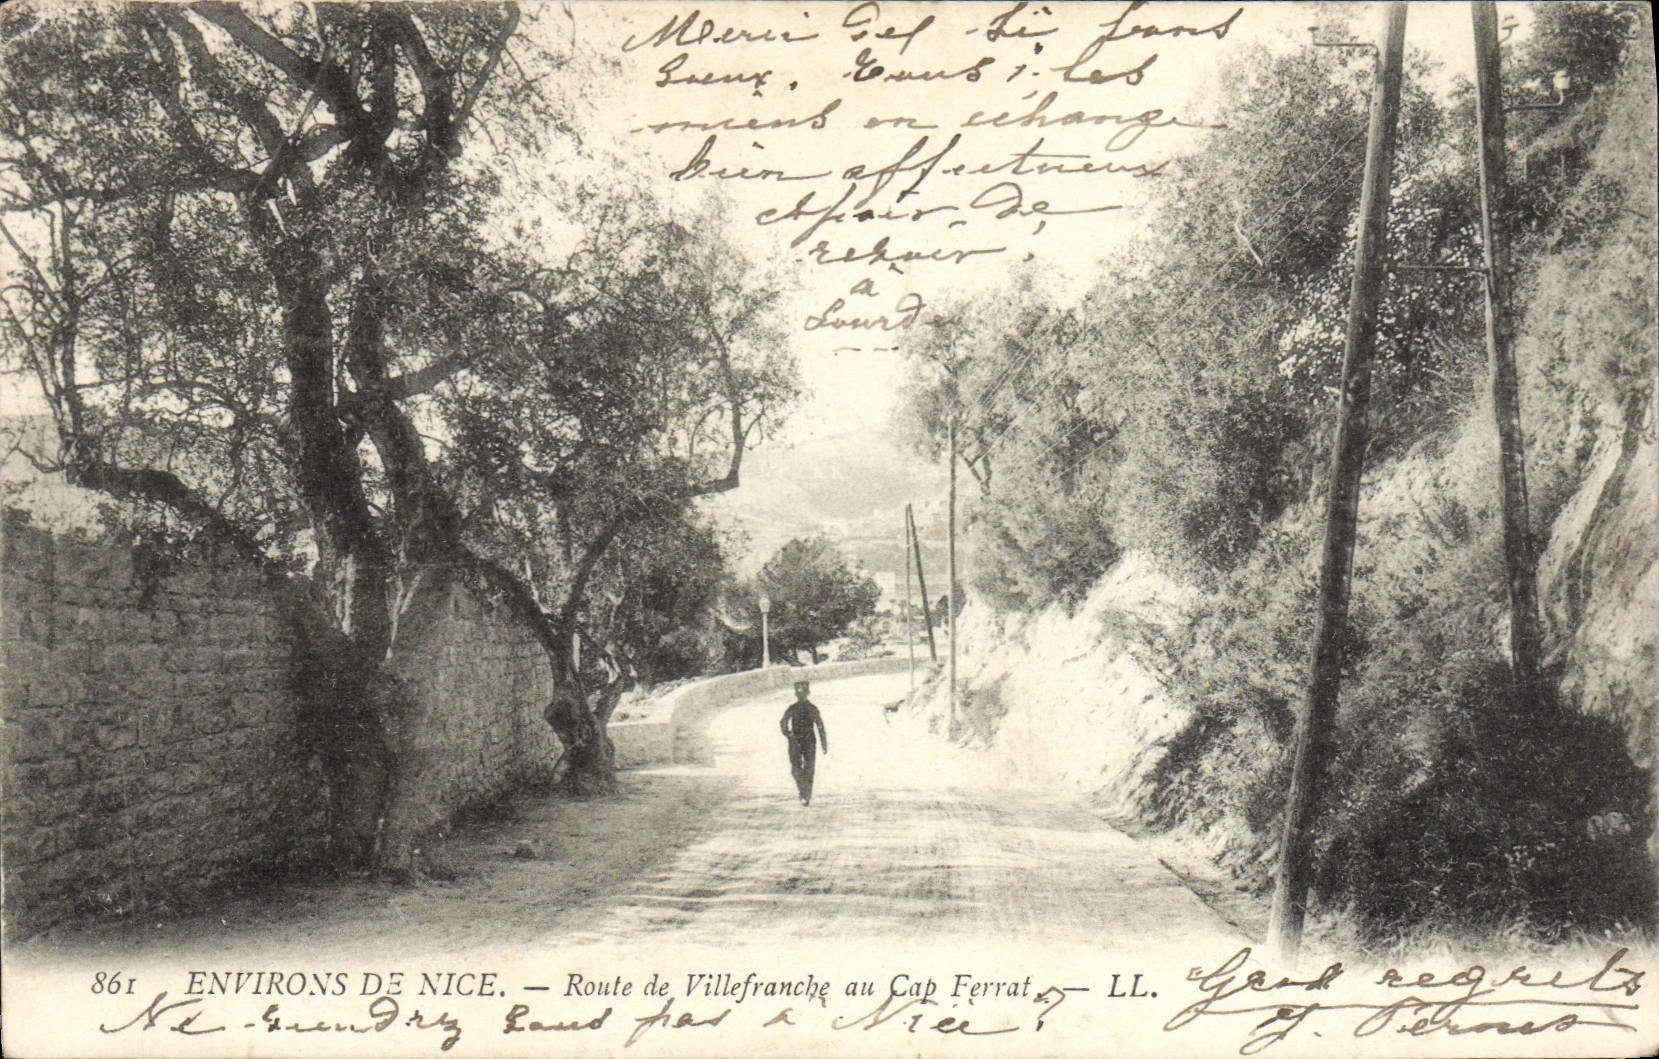 Merci
les
miens en échange
bien affectueux
espoir de
revoir.
à
Lourdes
861 ENVIRONS DE NICE. — Route de Villefranche au Cap Ferrat. — LL.
Ne viendrez vous pas à Nice?
Grand regrets
J.